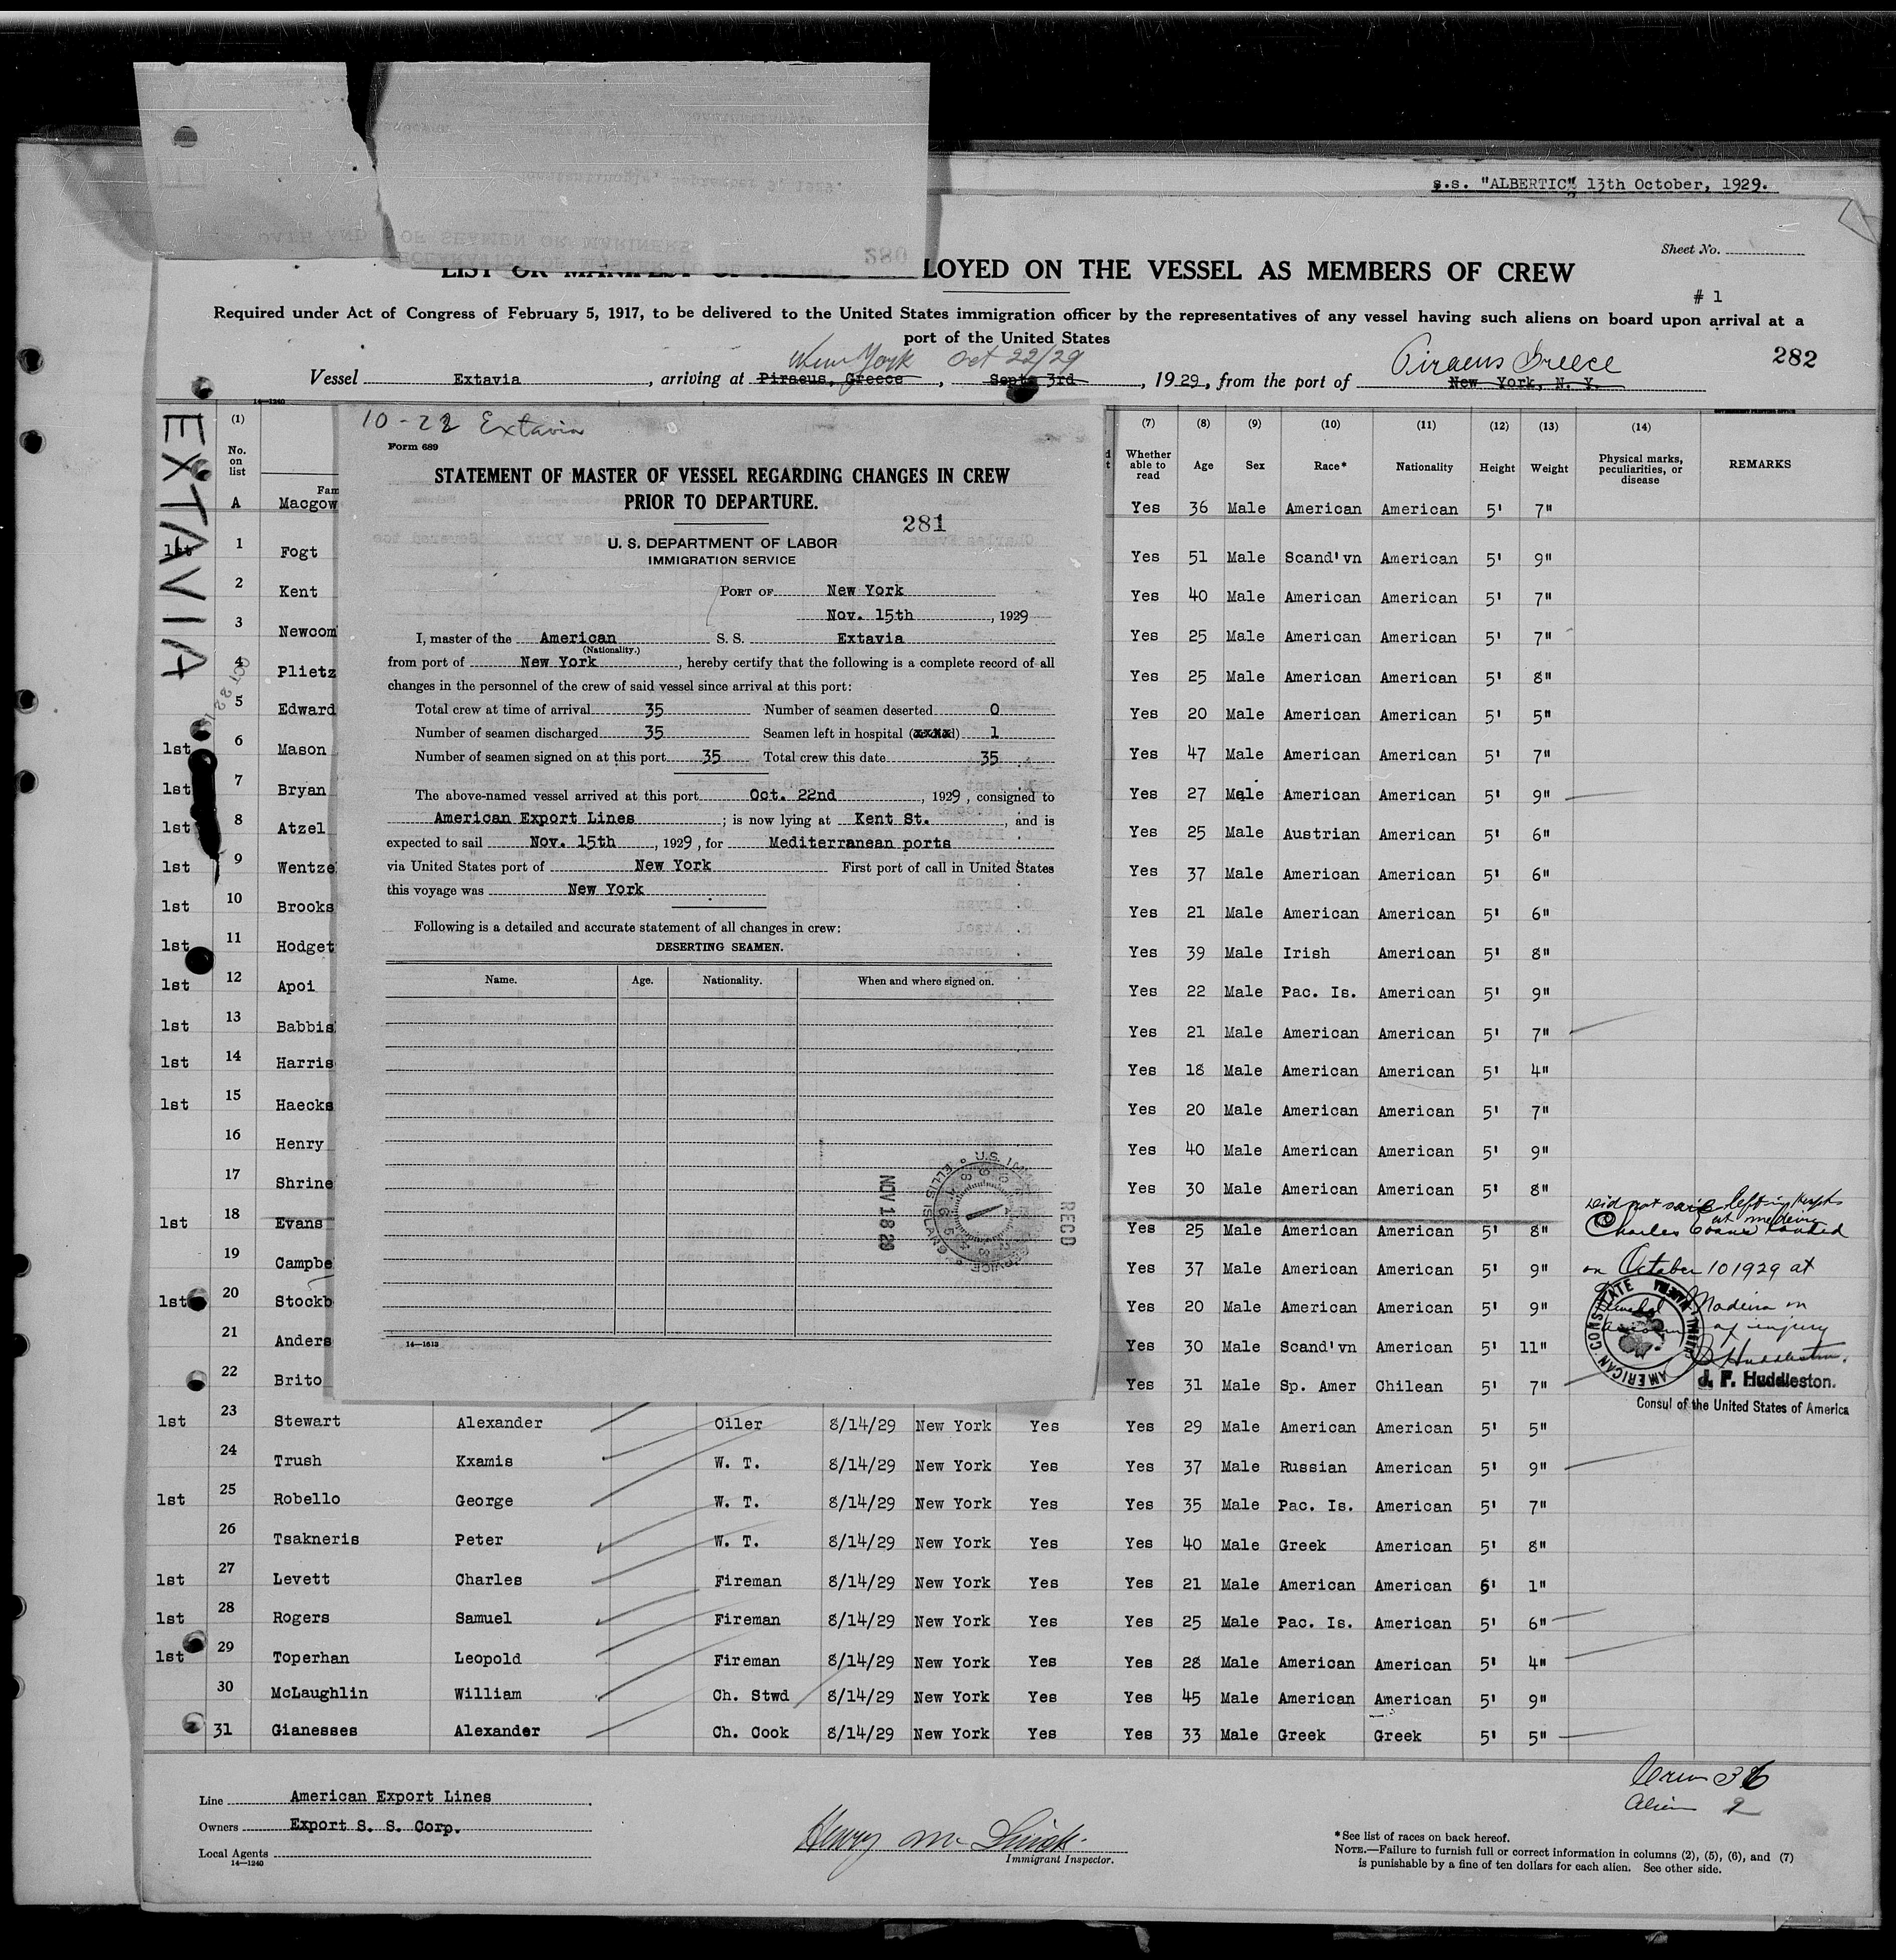 s.s. "ALBERTIC" 13th October, 1929.
Sheet No.
280
LOYED ON THE VESSEL AS MEMBERS OF CREW
# 1
Required under Act of Congress of February 5, 1917, to be delivered to the United States immigration officer by the representatives of any vessel having such aliens on board upon arrival at a
port of the United States
282
New York Oct 22/29 Piraeus Greece
Vessel Extavia, arriving at Piraeus, Greece, Septs 3rd, 1929, from the port of New York, N. Y.
14—1240
EXTAVIA
(1)
No. on list
Fam
A Macgow
1st 1 Fogt
2 Kent
3 Newcom
4 Plietz
5 Edward
1st 6 Mason
1st 7 Bryan
1st 8 Atzel
1st 9 Wentze
1st 10 Brooks
1st 11 Hodget
1st 12 Apoi
1st 13 Babbis
1st 14 Harris
1st 15 Haecks
16 Henry
17 Shrine
1st 18 Evans
19 Campbe
1st 20 Stockb
21 Anders
22 Brito
10-22 Extavia
Form 689
STATEMENT OF MASTER OF VESSEL REGARDING CHANGES IN CREW
PRIOR TO DEPARTURE.
281
U. S. DEPARTMENT OF LABOR
IMMIGRATION SERVICE
PORT OF New York
Nov. 15th, 1929
I, master of the American S. S. Extavia
(Nationality.)
from port of New York, hereby certify that the following is a complete record of all
changes in the personnel of the crew of said vessel since arrival at this port:
Total crew at time of arrival 35 Number of seamen deserted 0
Number of seamen discharged 35 Seamen left in hospital (xxxxd) 1
Number of seamen signed on at this port 35 Total crew this date 35
The above-named vessel arrived at this port Oct. 22nd, 1929, consigned to
American Export Lines; is now lying at Kent St., and is
expected to sail Nov. 15th, 1929, for Mediterranean ports
via United States port of New York First port of call in United States
this voyage was New York
Following is a detailed and accurate statement of all changes in crew:
DESERTING SEAMEN.
Name. Age. Nationality. When and where signed on.
NOV 18 29
RECD
14—1613
(7) (8) (9) (10) (11) (12) (13) (14)
Whether able to read Age Sex Race* Nationality Height Weight Physical marks, peculiarities, or disease REMARKS
Yes 36 Male American American 5' 7"
Yes 51 Male Scand'vn American 5' 9"
Yes 40 Male American American 5' 7"
Yes 25 Male American American 5' 7"
Yes 25 Male American American 5' 8"
Yes 20 Male American American 5' 5"
Yes 47 Male American American 5' 7"
Yes 27 Male American American 5' 9"
Yes 25 Male Austrian American 5' 6"
Yes 37 Male American American 5' 6"
Yes 21 Male American American 5' 6"
Yes 39 Male Irish American 5' 8"
Yes 22 Male Pac. Is. American 5' 9"
Yes 21 Male American American 5' 7"
Yes 18 Male American American 5' 4"
Yes 20 Male American American 5' 7"
Yes 40 Male American American 5' 9"
Yes 30 Male American American 5' 8"
Yes 25 Male American American 5' 8"
Yes 37 Male American American 5' 9"
Yes 20 Male American American 5' 9"
Yes 30 Male Scand'vn American 5' 11"
Yes 31 Male Sp. Amer Chilean 5' 7"
Did not sail left in
at Madeira
Charles Evans landed
on October 10 1929 at
Madeira on
of injury
AMERICAN CONSULATE
J. F. Huddleston.
Consul of the United States of America
1st 23 Stewart Alexander Oiler 8/14/29 New York Yes Yes 29 Male American American 5' 5"
24 Trush Kxamis W. T. 8/14/29 New York Yes Yes 37 Male Russian American 5' 9"
1st 25 Robello George W. T. 8/14/29 New York Yes Yes 35 Male Pac. Is. American 5' 7"
26 Tsakneris Peter W. T. 8/14/29 New York Yes Yes 40 Male Greek American 5' 8"
1st 27 Levett Charles Fireman 8/14/29 New York Yes Yes 21 Male American American 6' 1"
1st 28 Rogers Samuel Fireman 8/14/29 New York Yes Yes 25 Male Pac. Is. American 5' 6"
1st 29 Toperhan Leopold Fireman 8/14/29 New York Yes Yes 28 Male American American 5' 4"
30 McLaughlin William Ch. Stwd 8/14/29 New York Yes Yes 45 Male American American 5' 9"
31 Gianesses Alexander Ch. Cook 8/14/29 New York Yes Yes 33 Male Greek Greek 5' 5"
Crew 36
Alien 2
Line American Export Lines
Owners Export S. S. Corp.
Local Agents
14—1240
Immigrant Inspector.
*See list of races on back hereof.
NOTE.—Failure to furnish full or correct information in columns (2), (5), (6), and (7)
is punishable by a fine of ten dollars for each alien. See other side.